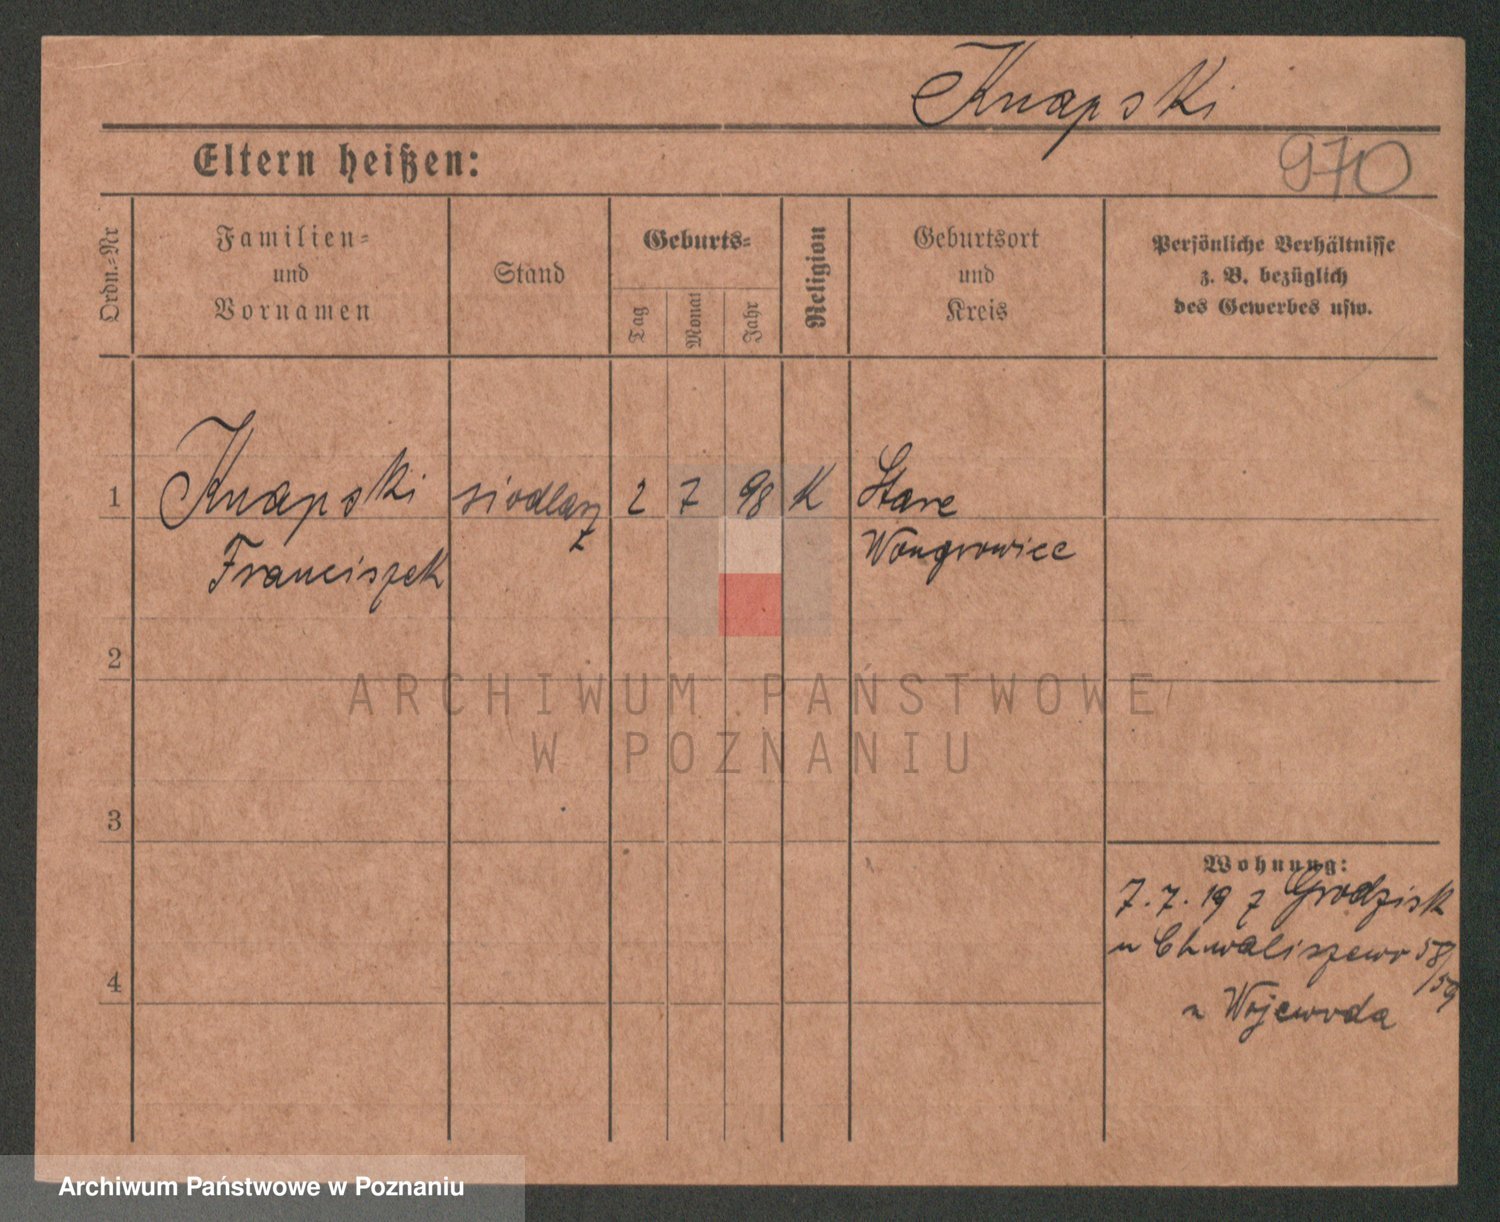 Knapski
Eltern heißen:
970
Ordn.-Nr
Familien-
und
Vornamen
Stand
Geburts-
Tag
Monat
Jahr
Religion
Geburtsort
und
Kreis
Persönliche Verhältnisse
z. B. bezüglich
des Gewerbes usw.
1
Knapski
siodlarz
2
7
98
K
Stare
Franciszek
Wongrowice
2
ARCHIWUM PAŃSTWOWE
W POZNANIU
3
Wohnung:
7. 7. 19 z Grodzisk
u Chwaliszewo 58/59
u Wojewoda
4
Archiwum Państwowe w Poznaniu